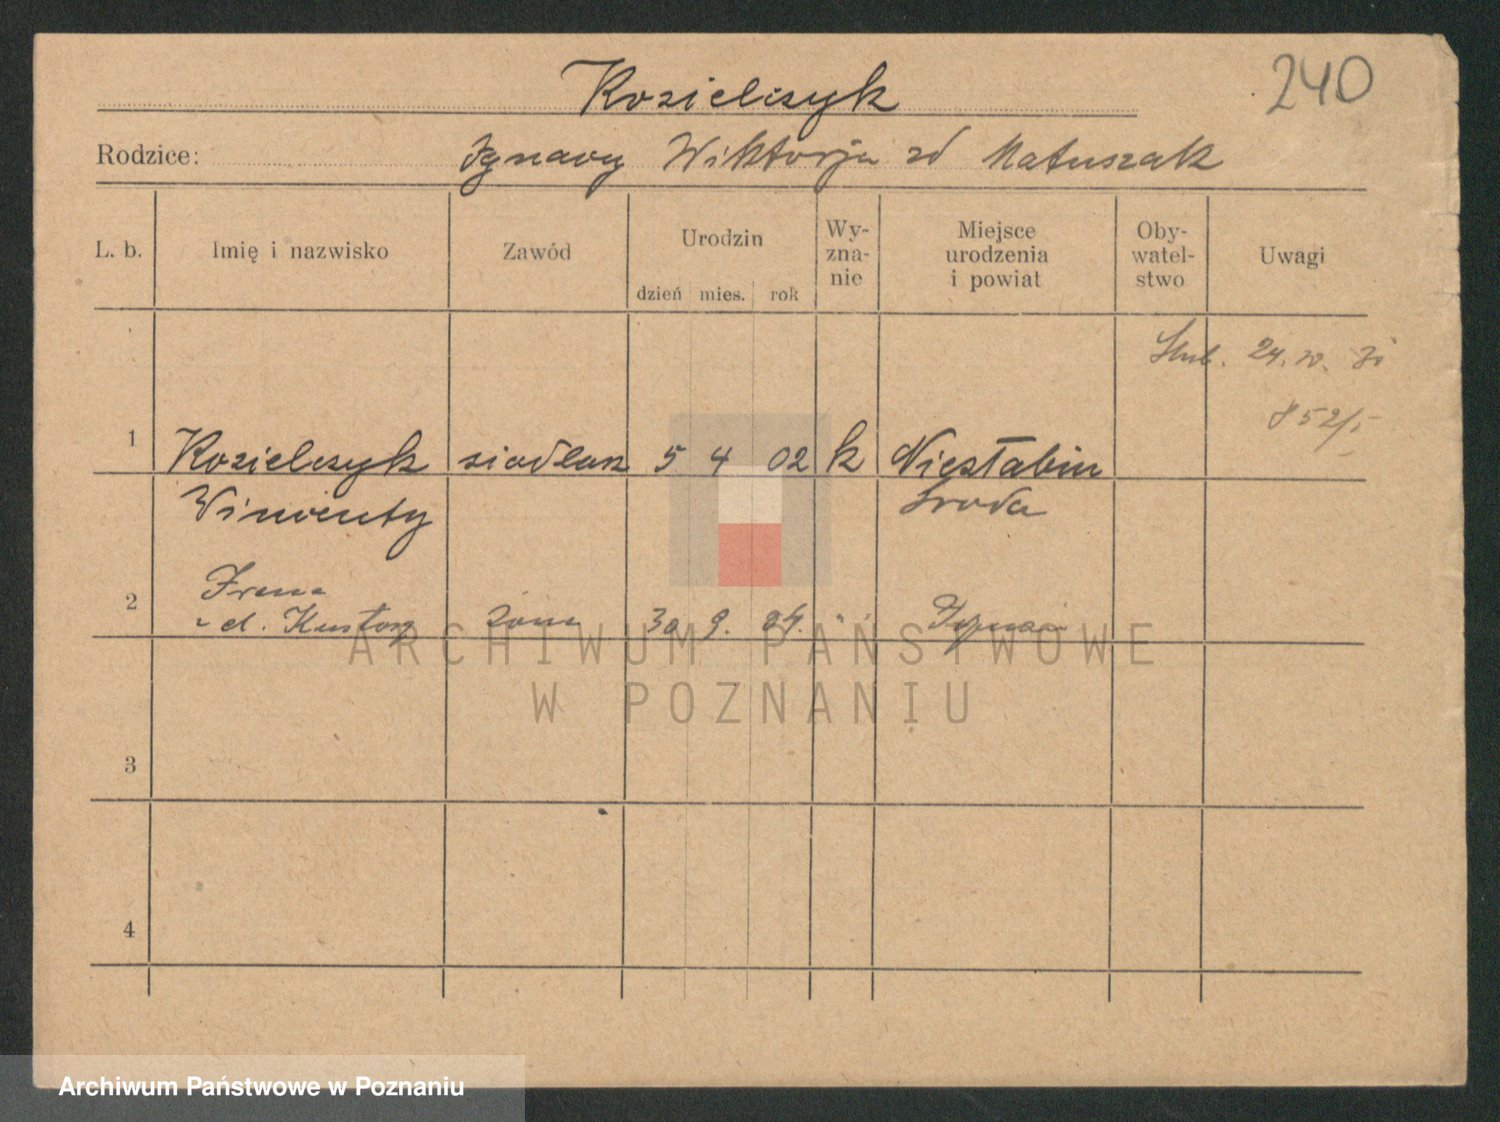 240
Kozielczyk
Rodzice: Ignacy Wiktorja zd Matuszak
L. b. Imię i nazwisko Zawód Urodzin dzień mies. rok Wy-zna-nie Miejsce urodzenia i powiat Oby-watel-stwo Uwagi
Ślub. 24. 31
852/
1 Kozielczyk siodlarz 5 4 02 k Niesłabin
Wincenty Środa
Irena
2 zd. Kustosz żona 30 9. 04. " Poznań
ARCHIWUM PAŃSTWOWE
W POZNANIU
3
4
Archiwum Państwowe w Poznaniu